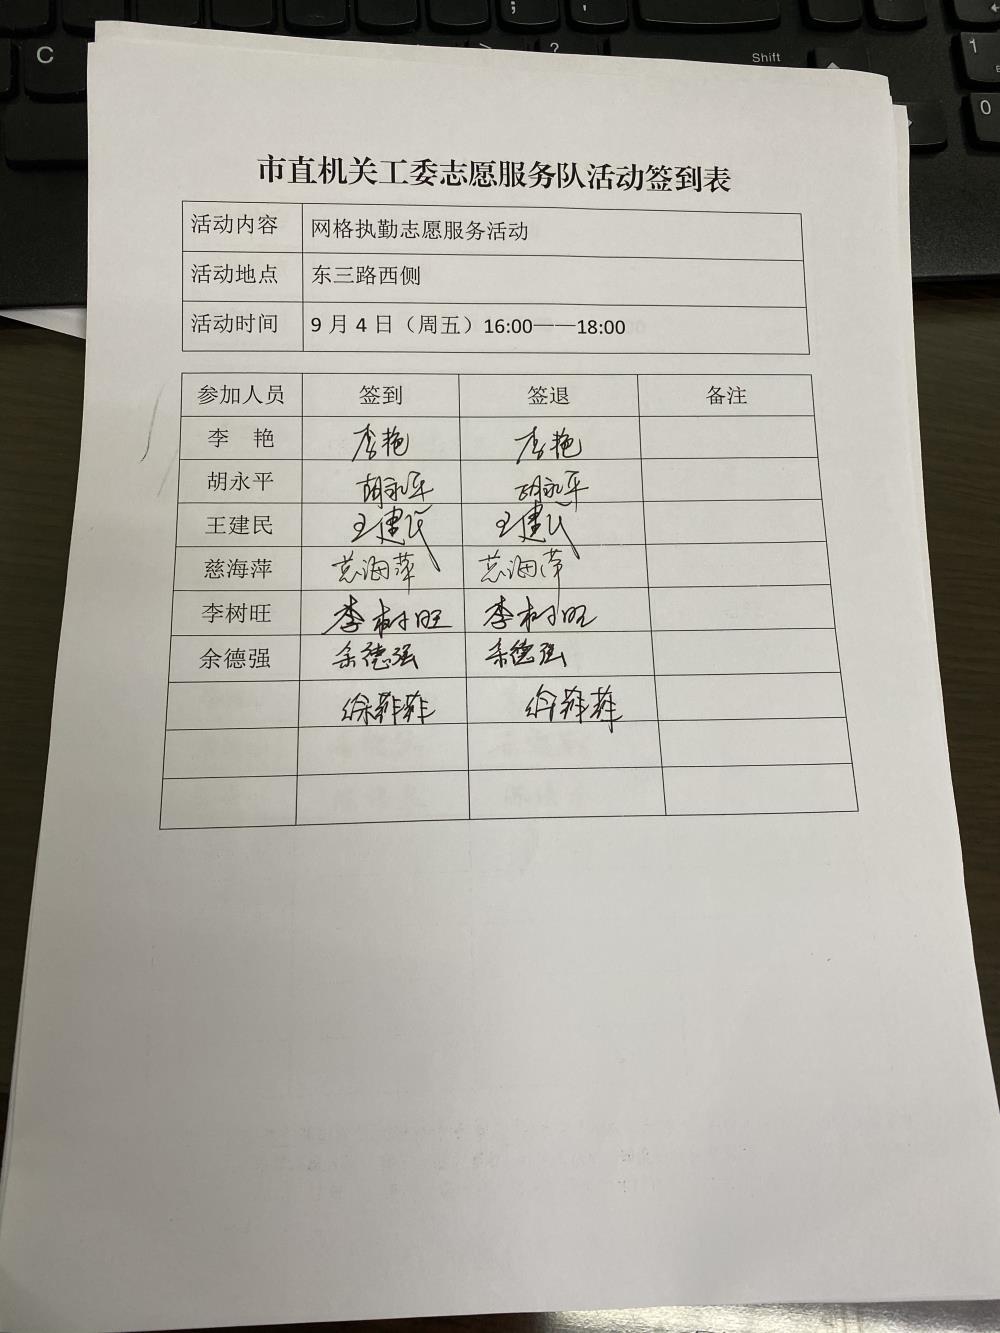 C
;
:
"
'
>
?
Shift
1
0
市直机关工委志愿服务队活动签到表
活动内容 网格执勤志愿服务活动
活动地点 东三路西侧
活动时间 9月4日（周五）16:00——18:00
参加人员 签到 签退 备注
李 艳 李艳 李艳
胡永平 胡永平 胡永平
王建民 王建民 王建民
慈海萍 慈海萍 慈海萍
李树旺 李树旺 李树旺
余德强 余德强 余德强
徐菲菲 徐菲菲